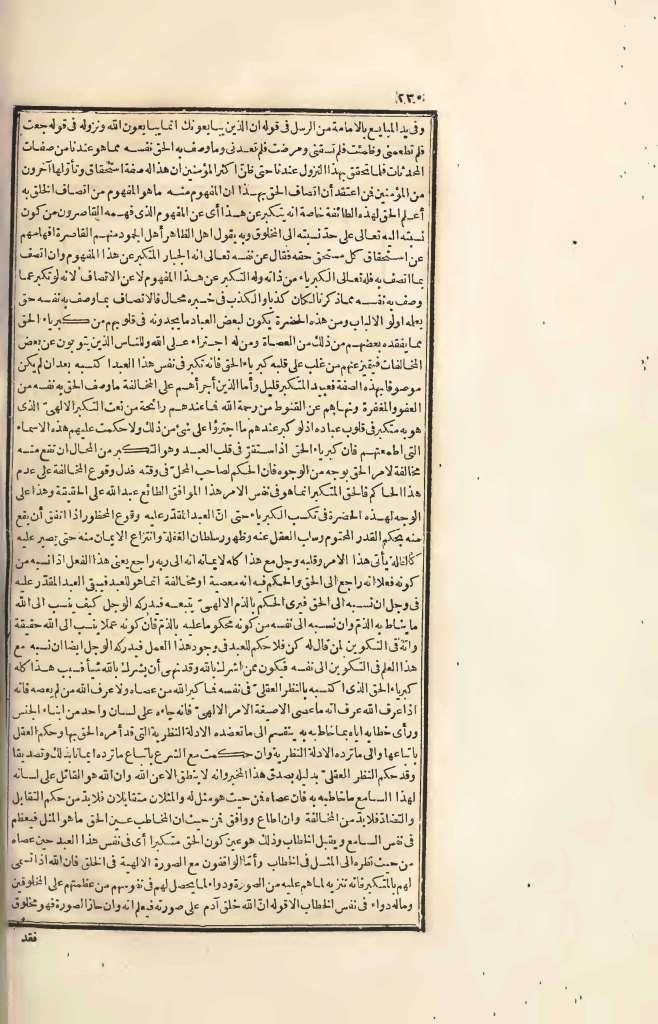 ٢٣٠
وفى يد المبايع بالامامة من الرسل فى قوله ان الذين يبايعونك انما يبايعون الله ونزوله فى قوله جعت
فلم تطعمنى وظمئت فلم تسقنى ومرضت فلم تعدنى وما وصف به الحق نفسه مما هو عندنا من صفات
المحدثات فلما تحقق بهذا النزول عندنا حتى ظن أكثر المؤمنين ان هذا له صفة استحقاق وتأولها آخرون
من المؤمنين فمن اعتقد أن اتصاف الحق بهذا ان المفهوم منه ما هو المفهوم من اتصاف الخلق به
أعلم الحق لهذه الطائفة خاصة انه يتكبر عن هذا أى عن المفهوم الذى فهمه القاصرون من كون
نسبته اليه تعالى على حد نسبته الى المخلوق وبه يقول اهل الظاهر أهل الجمود منهم القاصرة افهامهم
عن استحقاق كل مستحق حقه فقال عن نفسه تعالى انه الجبار المتكبر عن هذا المفهوم وان اتصف
بما اتصف به فله تعالى الكبرياء من ذاته وله التكبر عن هذا المفهوم لا عن الاتصاف لانه لو تكبر عما
وصف به نفسه مما ذكرنا لكان كذبا والكذب فى خبره محال فالاتصاف بما وصف به نفسه حق
يعلمه اولو الالباب ومن هذه الحضرة يكون لبعض العباد ما يجدونه فى قلوبهم من كبرياء الحق
مما يفقده بعضهم من ذلك من العصاة ومن له اجتراء على الله وللناس الذين يتوبون عن بعض
المخالفات فيتميز عنهم من غلب على قلبه كبرياء الحق فانه تكبر فى نفس هذا العبد اكتسبه بعد ان لم يكن
موصوفا بهذه الصفة فعبيد المتكبر قليل وأما الذين أجرأهم على المخالفة ما وصف الحق به نفسه من
العفو والمغفرة ونهاهم عن القنوط من رحمة الله فما عندهم رائحة من نعت التكبر الالهىّ الذى
هو به متكبر فى قلوب عباده اذ لو كبر عندهم ما اجترؤا على شئ من ذلك ولا حكمت عليهم هذه الاسماء
التى اطمعتهم فان كبرياء الحق اذا استقرّ فى قلب العبد وهو التكبر من المحال ان تقع منه
مخالفة لامر الحق بوجه من الوجوه فان الحكم لصاحب المحلّ فى وقته فدل وقوع المخالفة على عدم
هذا الحاكم فالحق المتكبر انما هو فى نفس الامر هذا الموافق الطائع عبد الله على الحقيقة وهذا على
الوجه لهذه الحضرة فى تكسب الكبرياء حتى انّ العبد المقدّر عليه وقوع المحظور اذا اتفق أن يقع
منه بحكم القدر المحتوم وساب العقل عنه وظهور سلطان الغفلة وانتزاع الايمان منه حتى يصير عليه
كالظلة يأتى هذا الامر وقلبه وجل مع هذا كله لايمانه انه الى ربه راجع يعنى هذا الفعل اذا نسبه من
كونه فعلا انه راجع الى الحق والحكم فيه انه معصية او مخالفة انما هو للعبد فيبقى العبد المقدّر عليه
فى وجل ان نسبه الى الحق فيرى الحكم بالذم الالهىّ يتبعه فيدركه الوجل كيف ينسب الى الله
ما يناط به الذم وان نسبه الى نفسه من كونه محكوما عليه بالذم فان كونه عملا ينسب الى الله حقيقة
وانه فى التكوين لمن قال له كن فلا حكم للعبد فى وجود هذا العمل فيدركه الوجل ايضا ان نسبه مع
هذا العلم فى التكوين الى نفسه فيكون ممن اشرك بالله وقد نهى أن يشرك بالله شيأ فسبب هذا كله
كبرياء الحق الذى اكتسبه بالنظر العقلىّ فى نفسه فما كبر الله من عصاه ولا عرف الله من لم يعصه فانه
اذا عرف الله عرف انه ما عصى الا صيغة الامر الالهىّ فانه جاءه على لسان واحد من ابناء الجنس
ورأى خطابه اياه بما خاطبه به ينقسم الى ما تعضده الادلة النظرية التى قد أمره الحق بها وحكم العقل
باتباعها والى ما ترده الادلة النظرية وان حكمت مع الشرع باتباع ما ترده ايمانا بذلك وتصديقا
وقد حكم النظر العقلىّ بدليله بصدق هذا المخبر وانه لا ينطق الا عن الله وان الله هو القائل على لسانه
لهذا السامع ما خاطبه به فان عصاه فمن حيث هو مثل له والمثلان متقابلان فلا بدّ من حكم التقابل
والتضاد فلا بدّ من المخالفة وان اطاع ووافق فمن حيث ان المخاطب عين الحق ما هو المثل فيعظم
فى نفس السامع ويقبل الخطاب وذلك هو عين كون الحق متكبرا أى فى نفس هذا العبد حين عصاه
من حيث نظره الى المثل فى الخطاب وأمّا الواقفون مع الصورة الالهية فى الخلق فان الله اذا تسمى
لهم بالمتكبر فانه تنزيه لما هم عليه من الصورة ودواء لما يحصل لهم فى نفوسهم من عظمتهم على المخلوقين
وماله دواء فى نفس الخطاب الا قوله انّ الله خلق آدم على صورته فيعلم انه وان حاز الصورة فهو مخلوق
فقد